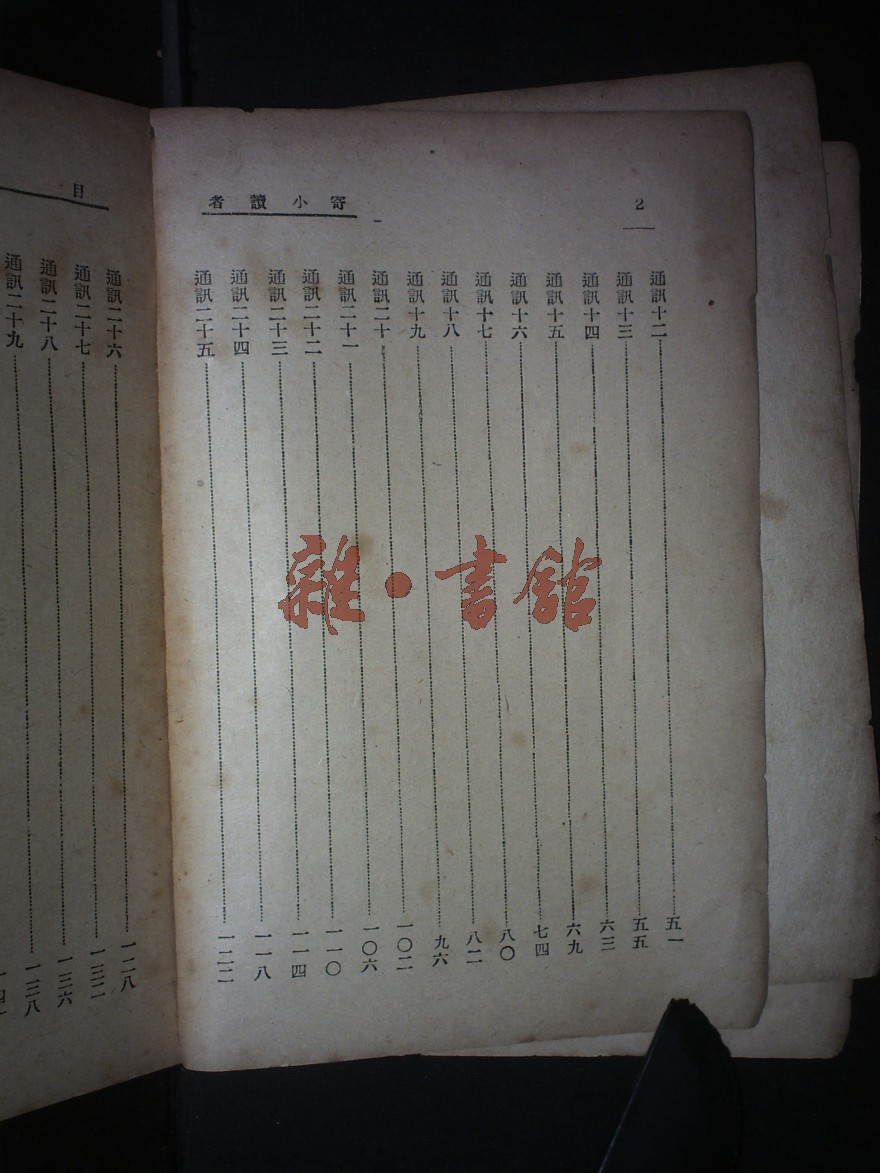 2
寄小讀者
通訊十二……五一
通訊十三……五五
通訊十四……六三
通訊十五……六九
通訊十六……七四
通訊十七……八〇
通訊十八……八二
通訊十九……九六
通訊二十……一〇二
通訊二十一……一〇六
通訊二十二……一一〇
通訊二十三……一一四
通訊二十四……一一八
通訊二十五……一二二
目
通訊二十六……一二八
通訊二十七……一三二
通訊二十八……一三六
通訊二十九……一三八
雜·書館